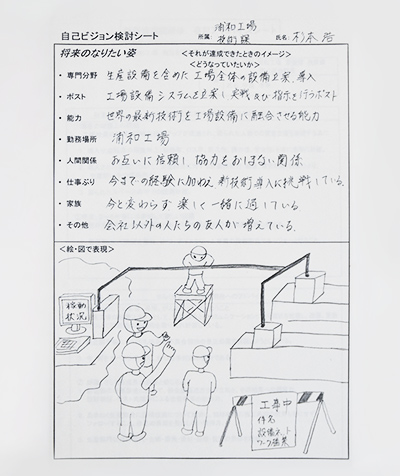 自己ビジョン検討シート 所属 浦和工場 技術課 氏名:杉本 浩
将来のなりたい姿 <それが達成できたときのイメージ>
<どうなっていたいか>
・専門分野 生産設備を含めた工場全体の設備立案、導入
・ポスト 工場設備システムを立案し実戦及び指示を行うポスト
・能力 世界の最新技術を工場設備に融合させる能力
・勤務場所 浦和工場
・人間関係 お互いに信頼し、協力をおしまない関係
・仕事ぶり 今までの経験に加わえ 新技術導入に挑戦している。
・家族 今と変わらず 楽しく 一緒に過している
・その他 会社以外の人たちの友人が増えている。
<絵・図で表現>
稼動
状況
工事中
件名
設備ネット
ワーク